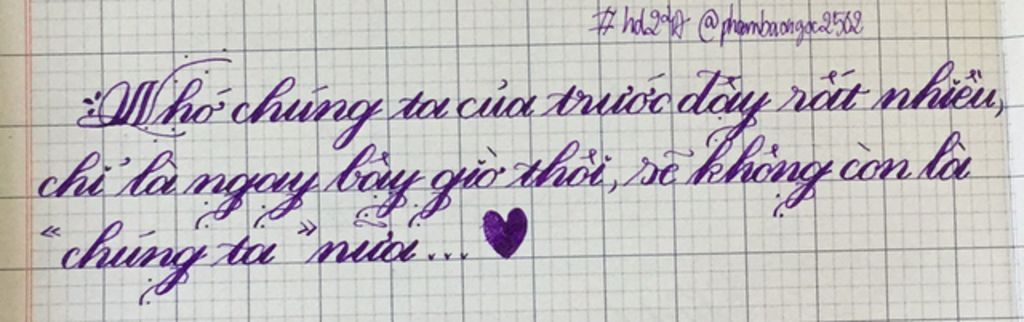 #hd247 @phambaongoc2502
Nhớ chúng ta của trước đây rất nhiều,
chỉ là ngay bây giờ thôi, sẽ không còn là
“chúng ta” nữa...